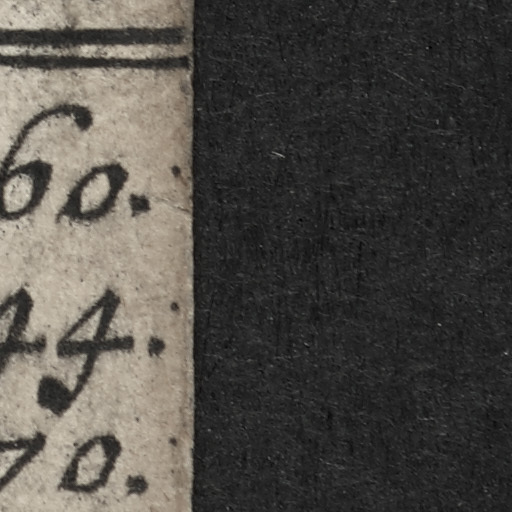 60.
44.
70.